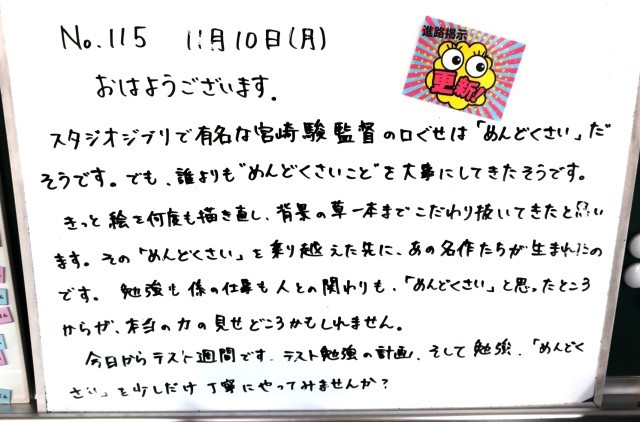 No.115 11月10日(月)
進路掲示
更新!
おはようございます。
スタジオジブリで有名な宮崎駿監督の口ぐせは「めんどくさい」だ
そうです。でも、誰よりも"めんどくさいこと"を大事にしてきたそうです。
きっと絵を何度も描き直し、背景の草一本までこだわり抜いてきたと思い
ます。その「めんどくさい」を乗り越えた先に、あの名作たちが生まれたの
です。勉強も係の仕事も人との関わりも、「めんどくさい」と思ったところ
からが、本当の力の見せどころかもしれません。
今日からテスト週間です。テスト勉強の計画、そして勉強、「めんどく
さい」を少しだけ丁寧にやってみませんか?